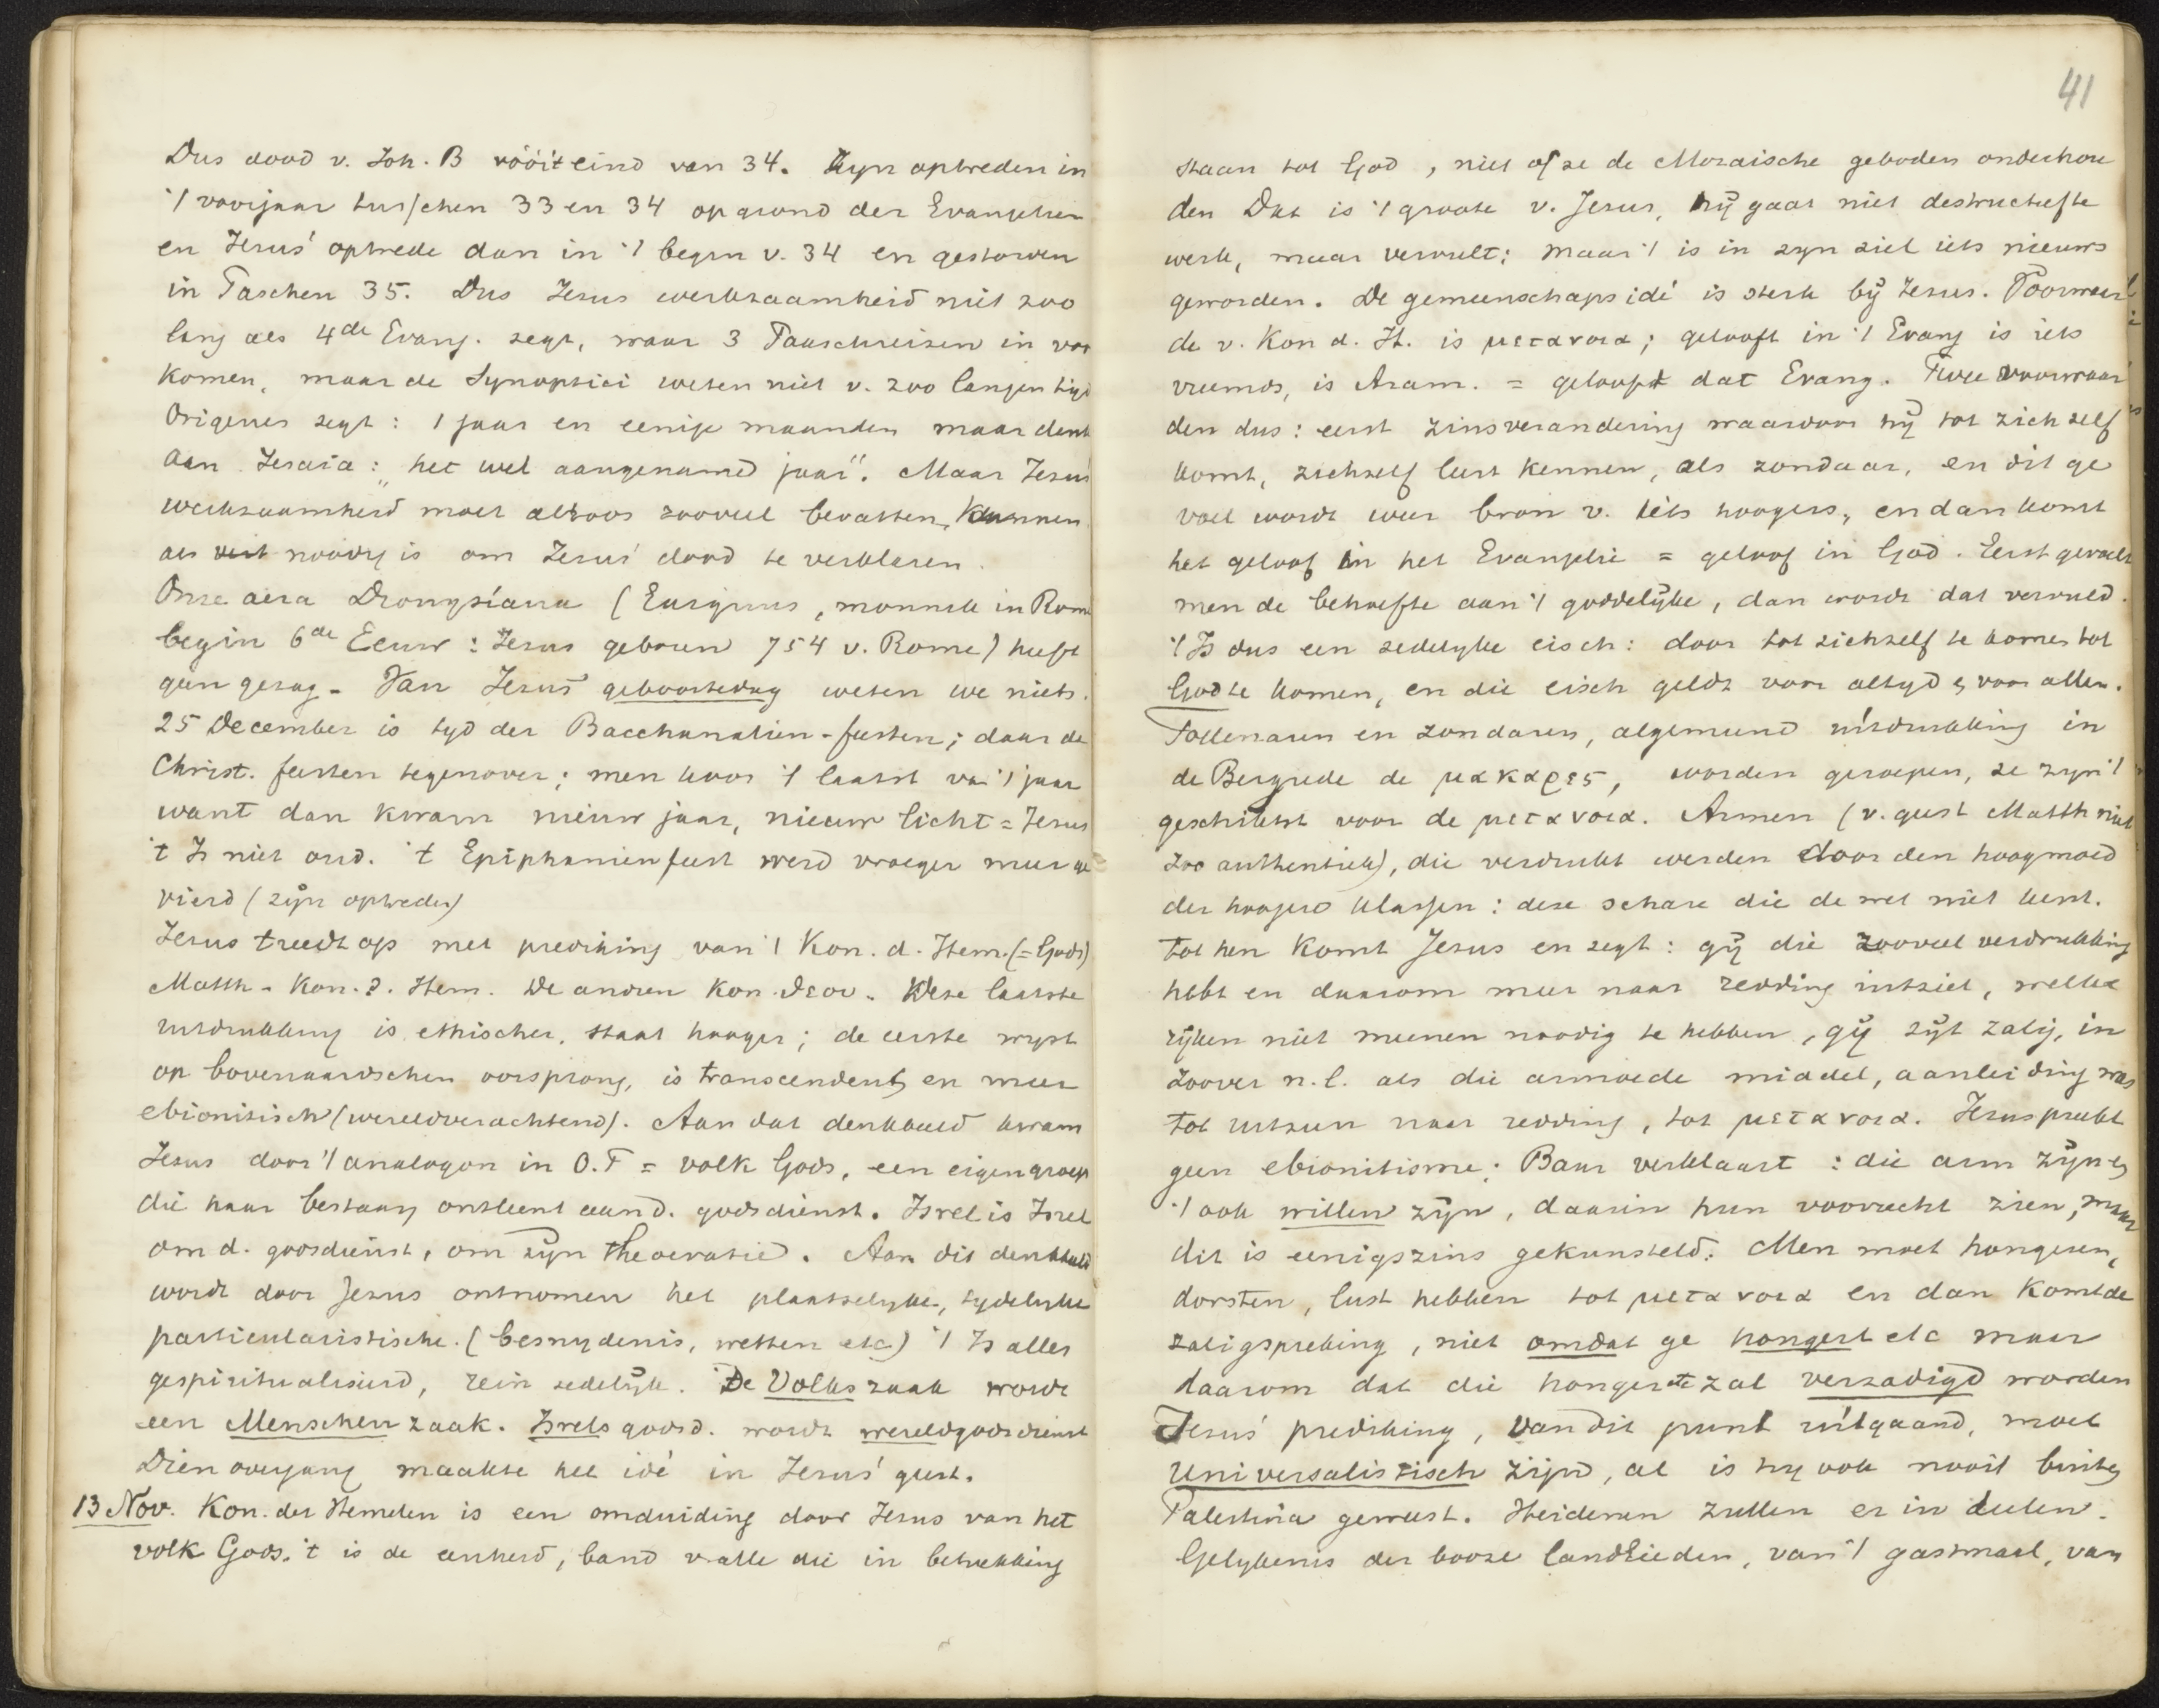 Dus dood v. Joh. B vóór 't eind van 34. Zyn optreden in
't voorjaar tusschen 33 en 34 op grond der Evangelien
en Jezus' optrede dan in 't begin v. 34 en gestorven
in Paschen 35. Dus Jezus werkzaamheid niet zoo
lang als 4de Evang. zegt, waar 3 Paaschreizen in voor
komen, maar de Synoptici weten niet v. zoo langen tijd
Origenes zegt: 1 jaar en eenige maanden maar denkt
aan Jesaia: "het wel aangenamed jaar". Maar Jezus'
werkzaamheid moet althoos zooveel bevatten, kunnen
als noodig is om Jezus' dood te verklaren.
Onze aera Dionysiana (Exiguus, monnik in Rome
begin 6de Eeuw: Jezus geboren 754 v. Rome) heeft
geen gezag. Van Jezus' geboortedag weten we niets.
25 December is tyd der Bacchanalien-feesten; daar de
Christ. feesten tegenover; men koos 't laatst van 't jaar
want dan kwam nieuw jaar, nieuw licht = Jezus
't Is niet oud. 't Epiphaniënfeest werd vroeger meer ge
vierd (zijn optreden)
Jezus treedt op met prediking van 't Kon. d. Hem. (= Gods)
Matth. Kon. d. Hem. De andren Kon. θεου. Deze laatste
uitdrukking is ethischer, staat hooger; de eerste wyst
op bovenaardschen oorsprong, is transcendent, en meer
ebionitisch (wereldverachtend). Aan dat denkbeeld kwam
Jezus door 't analogon in O.T = volk Gods, een eigen groep
die haar bestaan ontleent aan d. godsdienst. Isrel is Isrel
om d. godsdienst, om zijn theocratie. Aan dit denkbeeld
wordt door Jezus ontnomen het plaatselyke, tydelyke
particularistische. (besnydenis, wetten etc) 't Is alles
gespiritualiseerd, rein zedelijk. De Volkszaak wordt
een Menschenzaak. Isrels godsd. wordt wereldgodsdienst
Dien overgang maakte het idé in Jezus' geest.
13 Nov. Kon. der Hemelen is een omduiding door Jezus van het
volk Gods. 't is de eenheid, band v. alle die in betrekking
41
staan tot God, niet of ze de Mozaische geboden onderhou
den Dat is 't groote v. Jezus, hij gaat niet destructief te
werk, maar vervult; maar 't is in zyn ziel iets nieuws
geworden. De gemeenschaps idé is sterk bij Jezus. Voorwaar
de v. Kon d. H. is μετανοια; gelooft in 't Evang is iets
vreemds, is Aram. = gelooft dat Evang. Twee voorwaar
den dus: eerst zinsverandering waardoor hij tot zich zelf
komt, zichzelf leert kennen, als zondaar, en dit ge
voel wordt weer bron v. iets hoogers, en dan komt
het geloof in het Evangelie = geloof in God. Eerst gevoelt
men de behoefte aan 't goddelijke, dan wordt dat vervuld.
't Is dus een zedelyke eisch: door tot zichzelf te komen tot
God te komen, en die eisch geldt voor altyd & voor allen.
Tollenaren en zondaren, algemeene uitdrukking in
de Bergrede de μακαρες, worden geroepen, ze zyn 't
geschiktst voor de μετανοια. Armen (v. geest Matth niet
zoo authentiek), die verdrukt werden door den hoogmoed
der hoogere klassen: deze schare die de wet niet kent.
Tot hen komt Jezus en zegt: gij die zooveel verdrukking
hebt en daarom meer naar redding uitziet, welke
rijken niet meenen noodig te hebben, gij zijt zalig, in
zoover n.l. als die armoede middel, aanleiding was
tot uitzien naar redding, tot μετανοια. Jezus preekt
geen ebionitisme; Baur verklaart: die arm zijn &
't ook willen zijn, daarin hun voorrecht zien, maar
dit is eenigszins gekunsteld. Men moet hongeren,
dorsten, lust hebben tot μετανοια en dan komt de
zaligspreking, niet omdat ge hongert etc maar
daarom dat die hongerte zal verzadigd worden
Jezus' prediking, van dit punt uitgaand, moet
universalistisch zijn, al is hy ook nooit buiten
Palestina geweest. Heidenen zullen er in deelen.
Gelykenis der booze landlieden, van 't gastmael, van